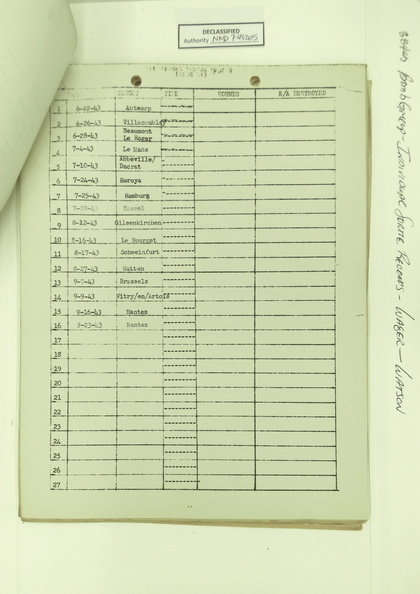 DECLASSIFIED
Authority NND 745005
TARGET TIME WOUNDS E/A DESTROYED
1 6-22-43 Antwerp
2 6-26-43 Villacoublay
3 6-28-43 Beaumont Le Roger
4 7-4-43 Le Mans
5 7-10-43 Abbeville/Ducrat
6 7-24-43 Heroya
7 7-25-43 Hamburg
8 7-28-43 Kassel
9 8-12-43 Gilsenkirchen
10 8-16-43 Le Bourget
11 8-17-43 Schweinfurt
12 8-27-43 Watten
13 9-7-43 Brussels
14 9-9-43 Vitry/en/Artois
15 9-16-43 Nantes
16 9-23-43 Nantes
17
18
19
20
21
22
23
24
25
26
27
Bomb Group - Individual Sortie Records - WAGER - WATSON